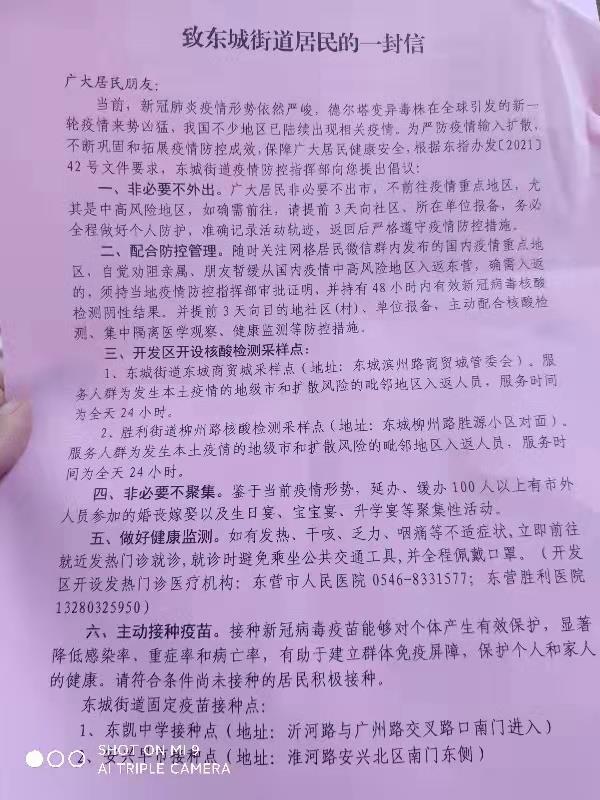 致东城街道居民的一封信
广大居民朋友：
当前，新冠肺炎疫情形势依然严峻，德尔塔变异毒株在全球引发的新一
轮疫情来势凶猛，我国不少地区已陆续出现相关疫情。为严防疫情输入扩散，
不断巩固和拓展疫情防控成效，保障广大居民健康安全，根据东指办发[2021]
42号文件要求，东城街道疫情防控指挥部向您提出倡议：
一、非必要不外出。广大居民非必要不出市，不前往疫情重点地区，尤
其是中高风险地区，如确需前往，请提前3天向社区、所在单位报备，务必
全程做好个人防护，准确记录活动轨迹，返回后严格遵守疫情防控措施。
二、配合防控管理。随时关注网格居民微信群内发布的国内疫情重点地
区，自觉劝阻亲属、朋友暂缓从国内疫情中高风险地区入返东营，确需入返
的，须持当地疫情防控指挥部审批证明，并持有48小时内有效新冠病毒核酸
检测阴性结果。并提前3天向目的地社区(村)、单位报备，主动配合核酸检
测、集中隔离医学观察、健康监测等防控措施。
三、开发区开设核酸检测采样点：
1、东城街道东城商贸城采样点（地址：东城滨州路商贸城管委会）。服
务人群为发生本土疫情的地级市和扩散风险的毗邻地区入返人员，服务时间
为全天24小时。
2、胜利街道柳州路核酸检测采样点（地址：东城柳州路胜源小区对面）。
服务人群为发生本土疫情的地级市和扩散风险的毗邻地区入返人员，服务时
间为全天24小时。
四、非必要不聚集。鉴于当前疫情形势，延办、缓办100人以上有市外
人员参加的婚丧嫁娶以及生日宴、宝宝宴、升学宴等聚集性活动。
五、做好健康监测。如有发热、干咳、乏力、咽痛等不适症状，立即前往
就近发热门诊就诊，就诊时避免乘坐公共交通工具，并全程佩戴口罩。（开发
区开设发热门诊医疗机构：东营市人民医院 0546-8331577；东营胜利医院
13280325950）
六、主动接种疫苗。接种新冠病毒疫苗能够对个体产生有效保护，显著
降低感染率、重症率和病亡率，有助于建立群体免疫屏障，保护个人和家人
的健康。请符合条件尚未接种的居民积极接种。
东城街道固定疫苗接种点：
1、东凯中学接种点（地址：沂河路与广州路交叉路口南门进入）
2、安兴早市接种点（地址：淮河路安兴北区南门东侧）
SHOT ON MI 9
AI TRIPLE CAMERA